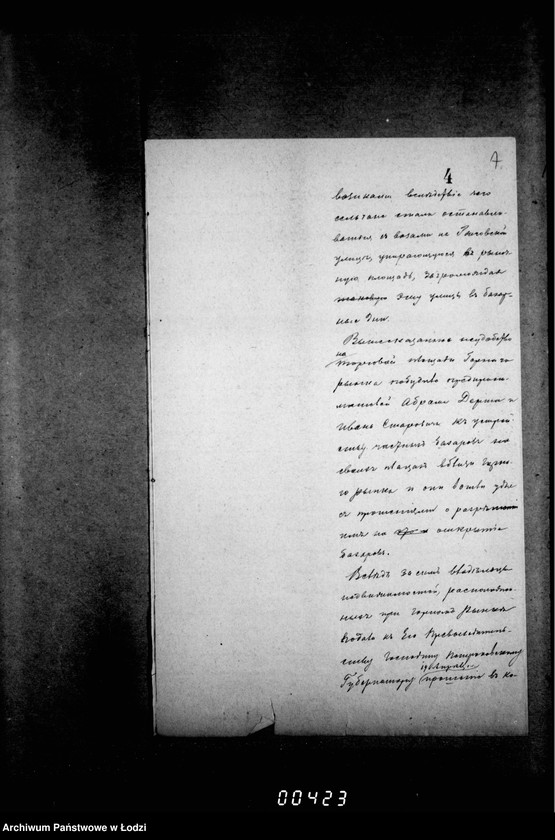 7
4
возниками вследствіе чего
сельчане стали останавли-
ваться съ возами на
улицѣ, упирающуюся въ рыноч-
ную площадь, загромождая
эту улицу въ базар-
ные дни.
Вышесказанное неудобство
на торговой площади Горнаго
рынка побудило
Абрама и
Ивана къ устрой-
ству частныхъ базаровъ на
своихъ плацахъ вблизи Горна-
го рынка и они вошли
съ прошеніями о разрѣшеніи
имъ на открытіе
базаровъ.
Вслѣдъ за симъ владѣльцы
недвижимостей, расположен-
ныхъ при Горномъ рынкѣ
подали къ Его Превосходитель-
ству Господину Петроковскому
Губернатору прошеніе въ ко-
00423
Archiwum Państwowe w Łodzi